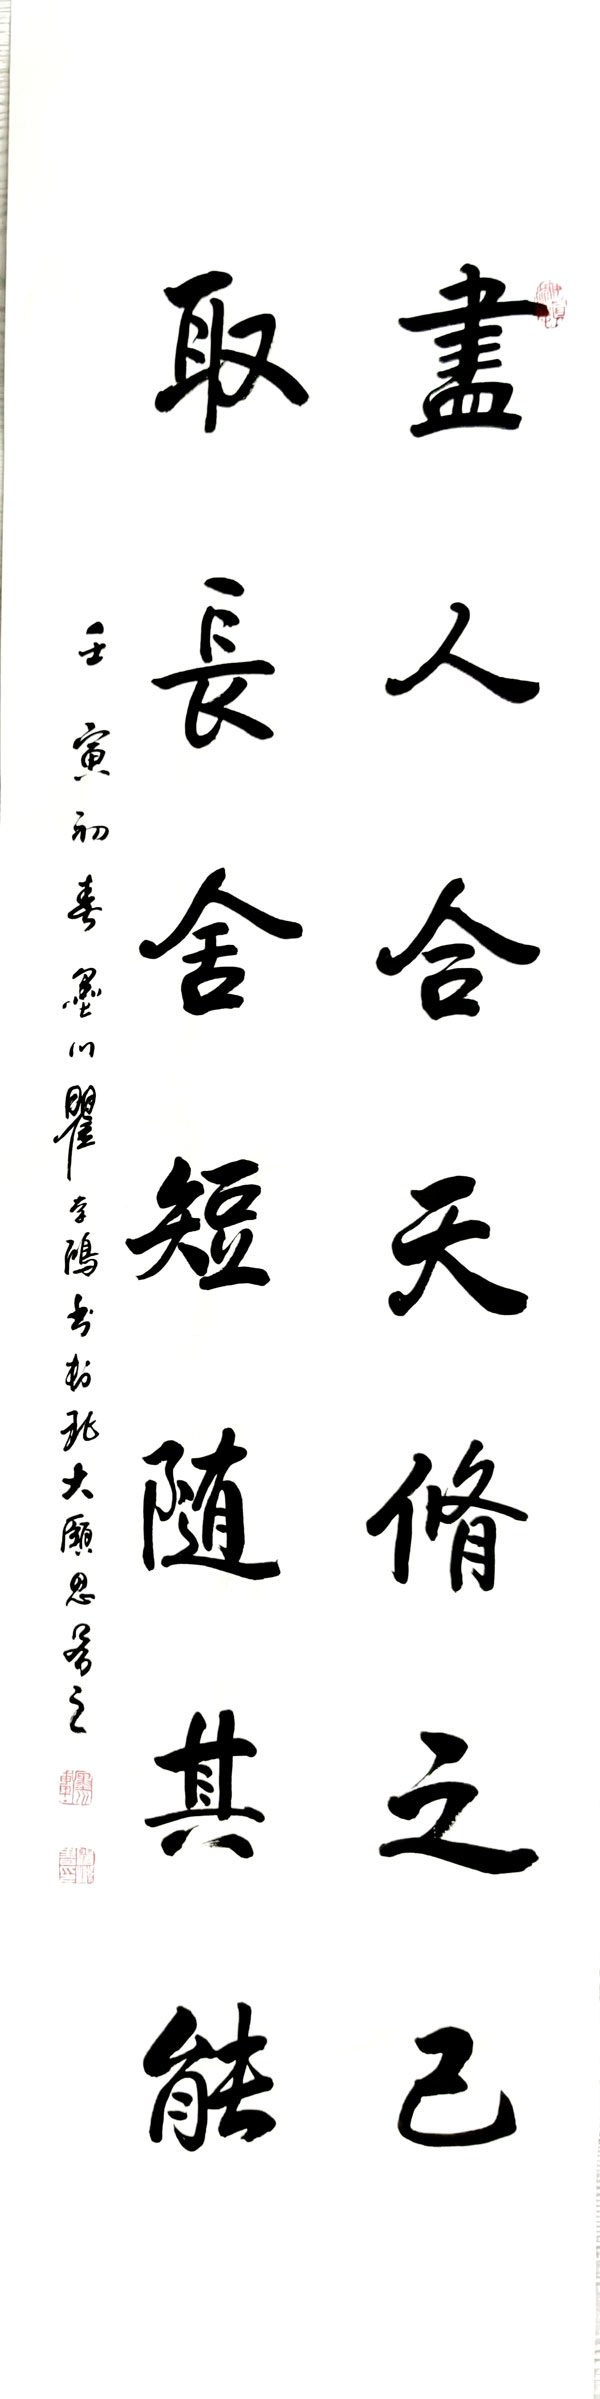 盡人合天脩之己
取長舍短隨其能
壬寅初春墨川瞿李鴻書於北大願思齋之